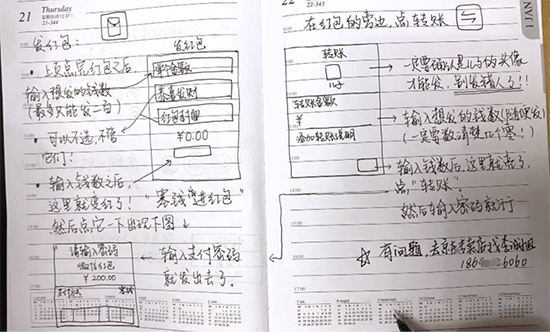 21 Thursday
21-344
发红包:
发红包
• 上页点完红包之后
输入想发的钱数
(最多只能发二百)
单个金额
恭喜发财
红包封面
• 可以不选,不管
它们!
¥0.00
• 输入钱数之后,
这里就变红了!
“零钱塞进红包”
然后点它一下出现下图↓
请输入密码
微信红包
¥200.00
支付方式 零钱
输入支付密码
就发出去了.
22
22-343
JAN
在红包的旁边,点转账
转账
儿子
转账金额
¥
添加转账说明
一定要确认是儿子的头像
才能发,别发错人了!!
输入想发的钱数(随便发)
(一定要数清楚几个零!)
输入钱数后,这里就亮了.
点“转账”.
然后输入密码就行
☆ 有问题,去京东专卖店找
186 6060